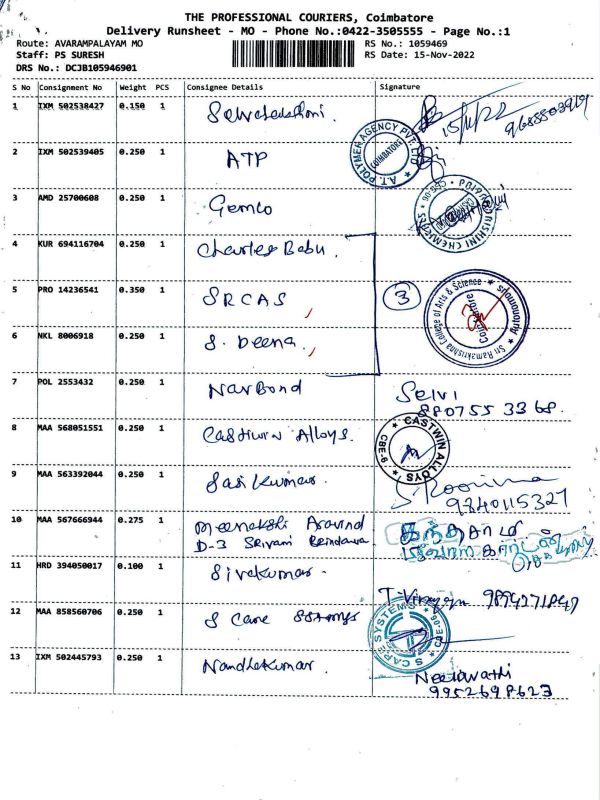 THE PROFESSIONAL COURIERS, Coimbatore
Delivery Runsheet - MO - Phone No.:0422-3505555 - Page No.:1
Route: AVARAMPALAYAM MO RS No.: 1059469
Staff: PS SURESH RS Date: 15-Nov-2022
DRS No.: DCJB105946901
S No Consignment No Weight PCS Consignee Details Signature
1 IXM 502538427 0.150 1 15/11/22
2 IXM 502539405 0.250 1 ATP A.T. POLYMER AGENCY PVT. LTD COIMBATORE
3 AMD 25700608 0.250 1 Gemco RISHINI CHEMICALS
4 KUR 694116704 0.250 1 Charles Babu
5 PRO 14236541 0.350 1 SRCAS 3 Sri Ramakrishna College of Arts & Science Autonomous Coimbatore
6 NKL 8006918 0.250 1 S. Deena
7 POL 2553432 0.250 1 NarBond Selvi
880755 3368.
8 MAA 568051551 0.250 1 Castwin Alloys. CASTWIN ALLOYS CBE-6
9 MAA 563392044 0.250 1 Sasikumar.
9840115327
10 MAA 567666944 0.275 1 Meenakshi Aravind கந்தசாமி
D-3 Srivani Brindavan
11 HRD 394050017 0.100 1 Sivakumar.
12 MAA 858560706 0.250 1 S Cape S CAPE SYSTEMS CBE-06
13 IXM 502445793 0.250 1 Nandhakumar. Neelavathi
9952698623